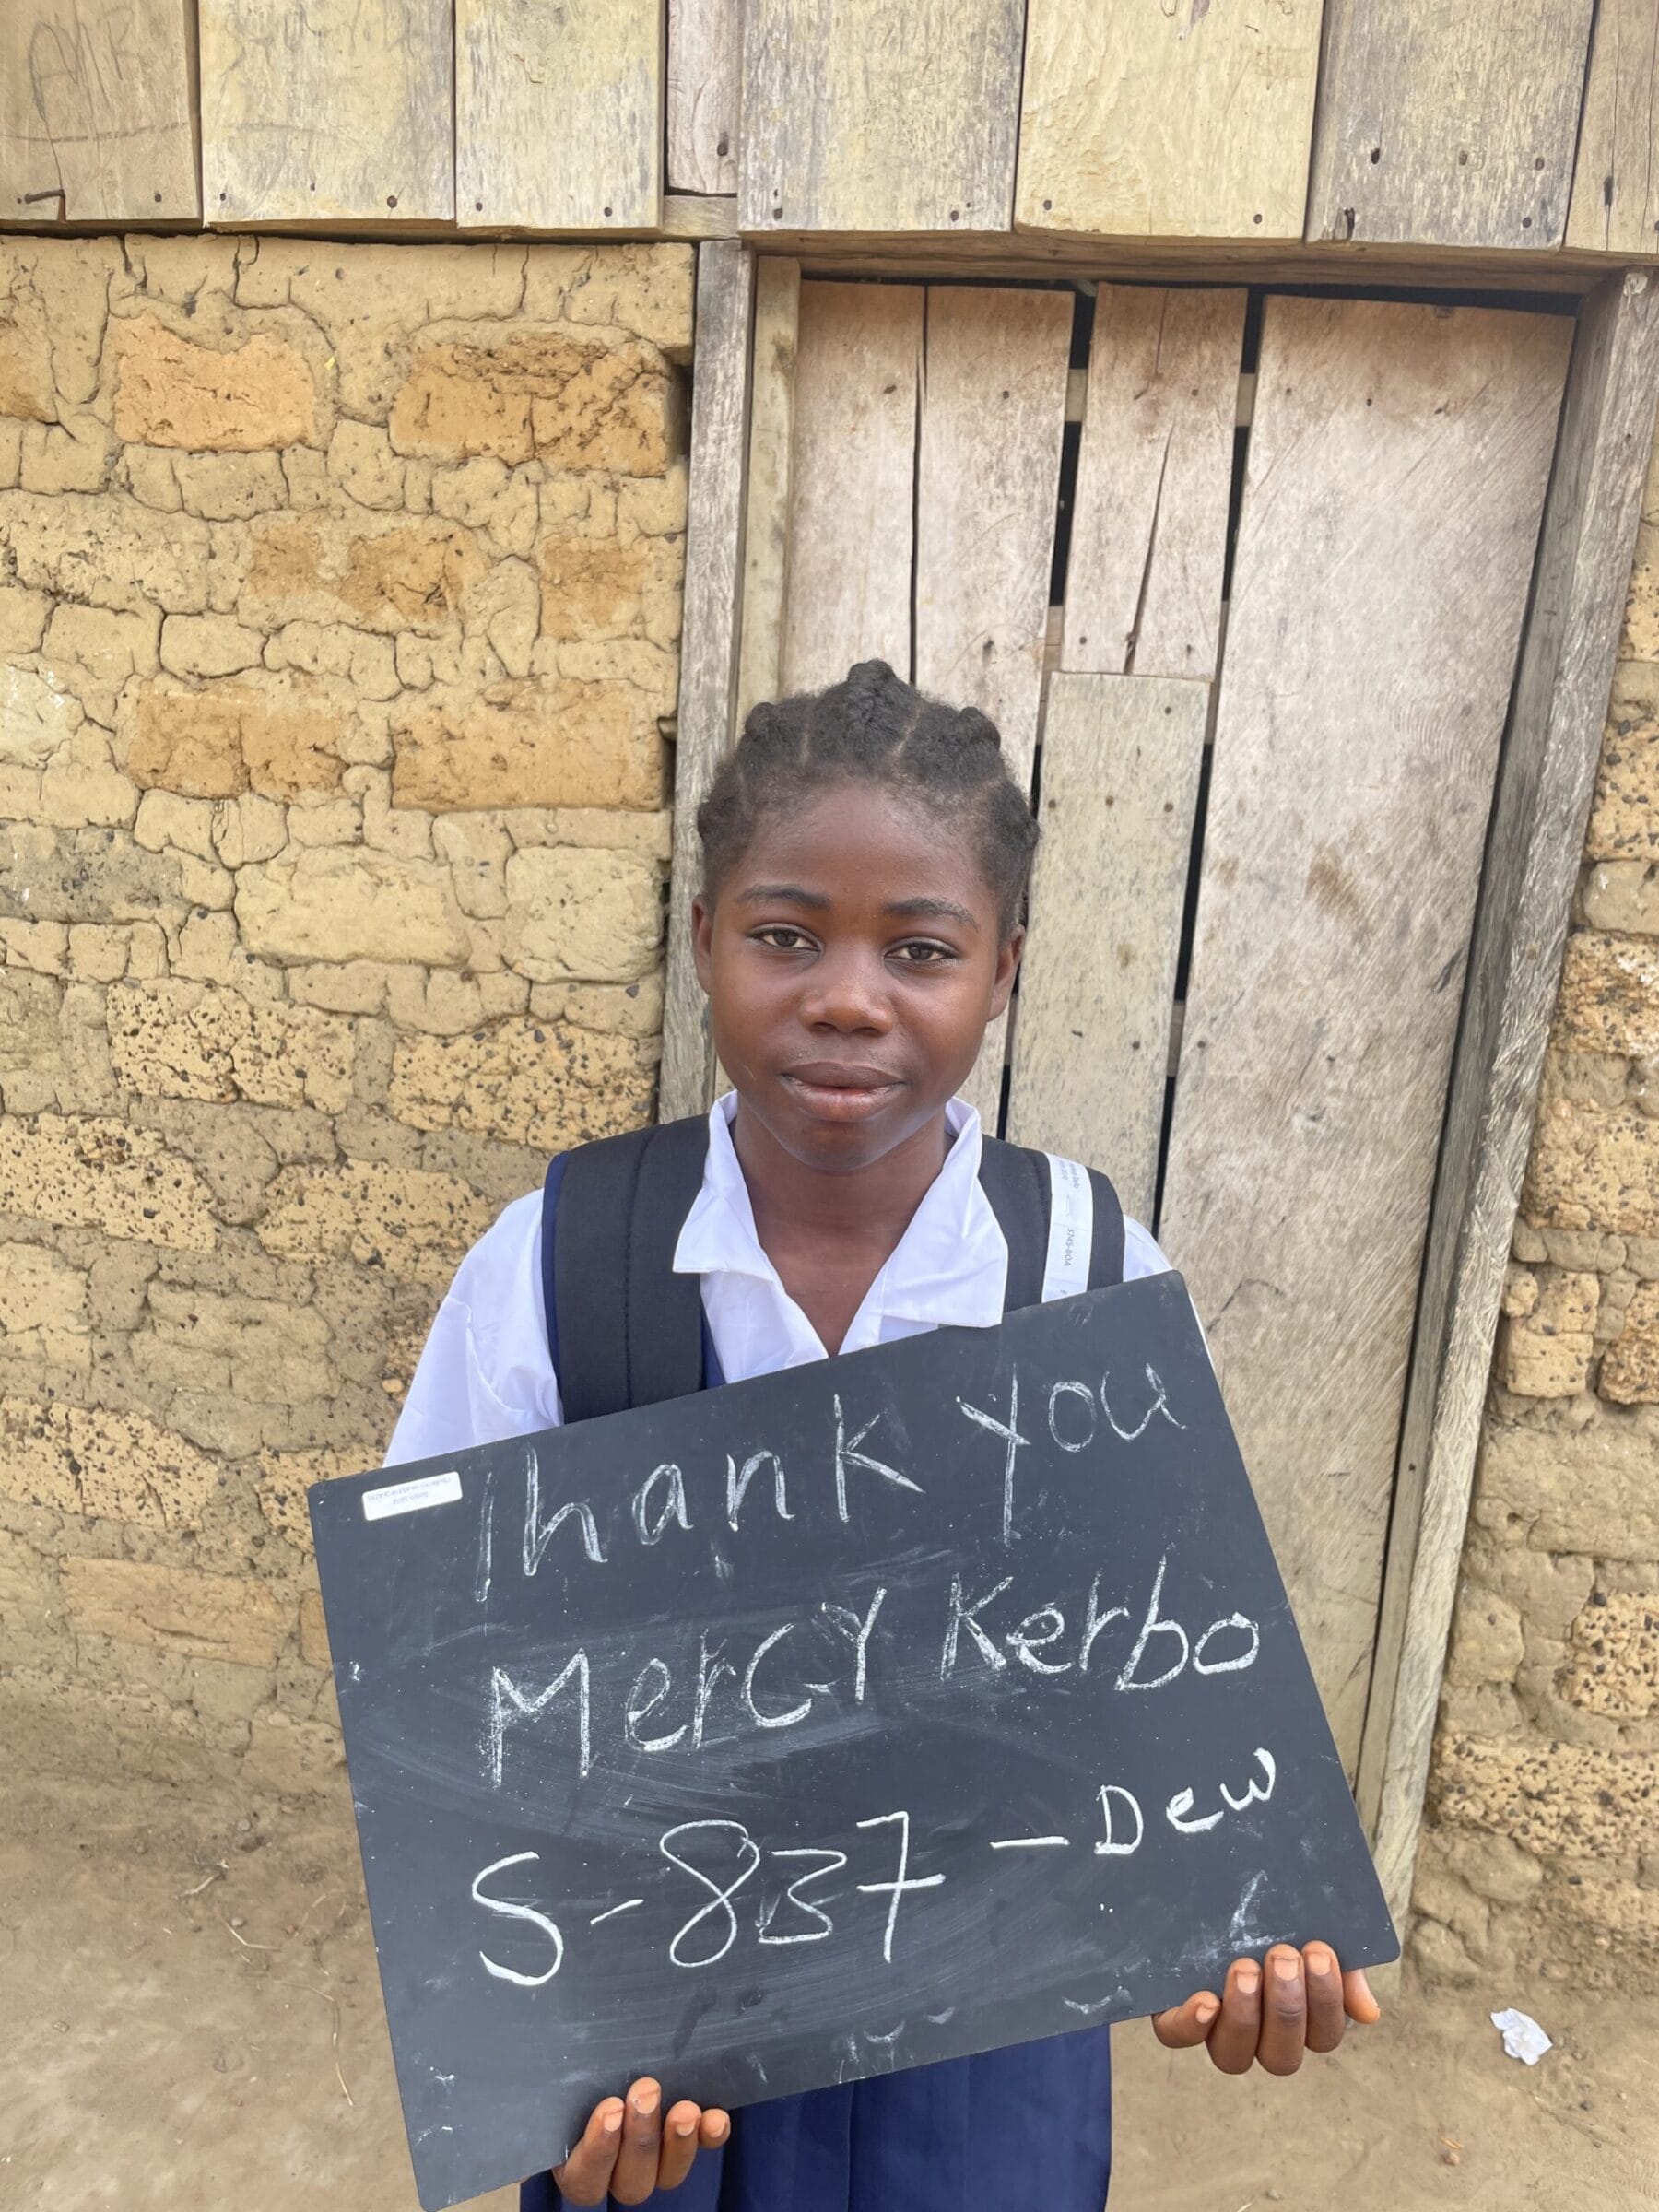 Thank You
Mercy Kerbo
S-837 - Dew